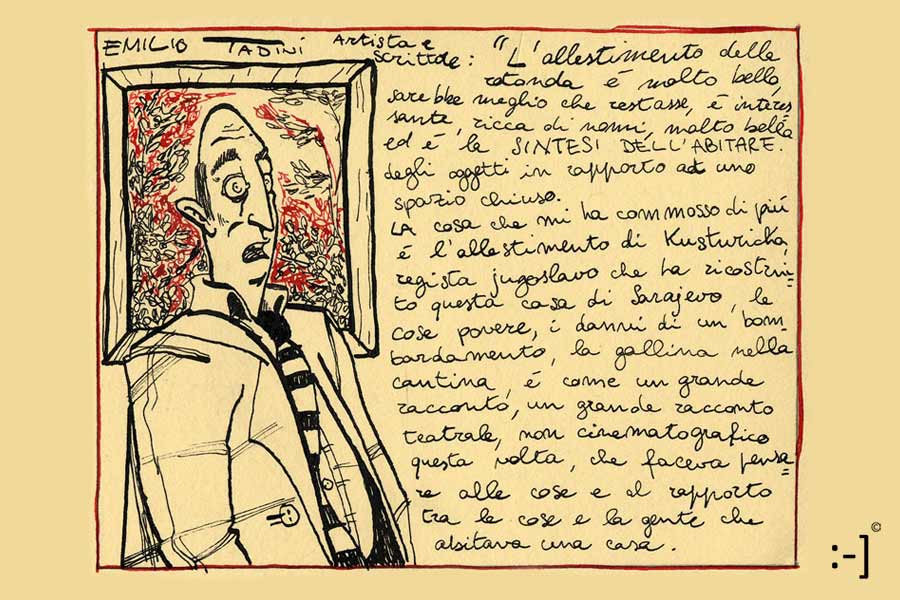 EMILIO TADINI Artista e
scrittore: "L'allestimento della
rotonda è molto bello,
sarebbe meglio che restasse, è interes
sante, ricca di nomi, molto bella
ed è la SINTESI DELL'ABITARE.
degli oggetti in rapporto ad uno
spazio chiuso.
LA cosa che mi ha commosso di più
è l'allestimento di Kusturicka,
regista jugoslavo che ha ricostrui=
to questa casa di Sarajevo, le
cose povere, i danni di un bom
bardamento, la gallina nella
cantina, é come un grande
racconto, un grande racconto
teatrale, non cinematografico
questa volta, che faceva pensa=
re alle cose e al rapporto
tra le cose e la gente che
abitava una casa.
:-] ©